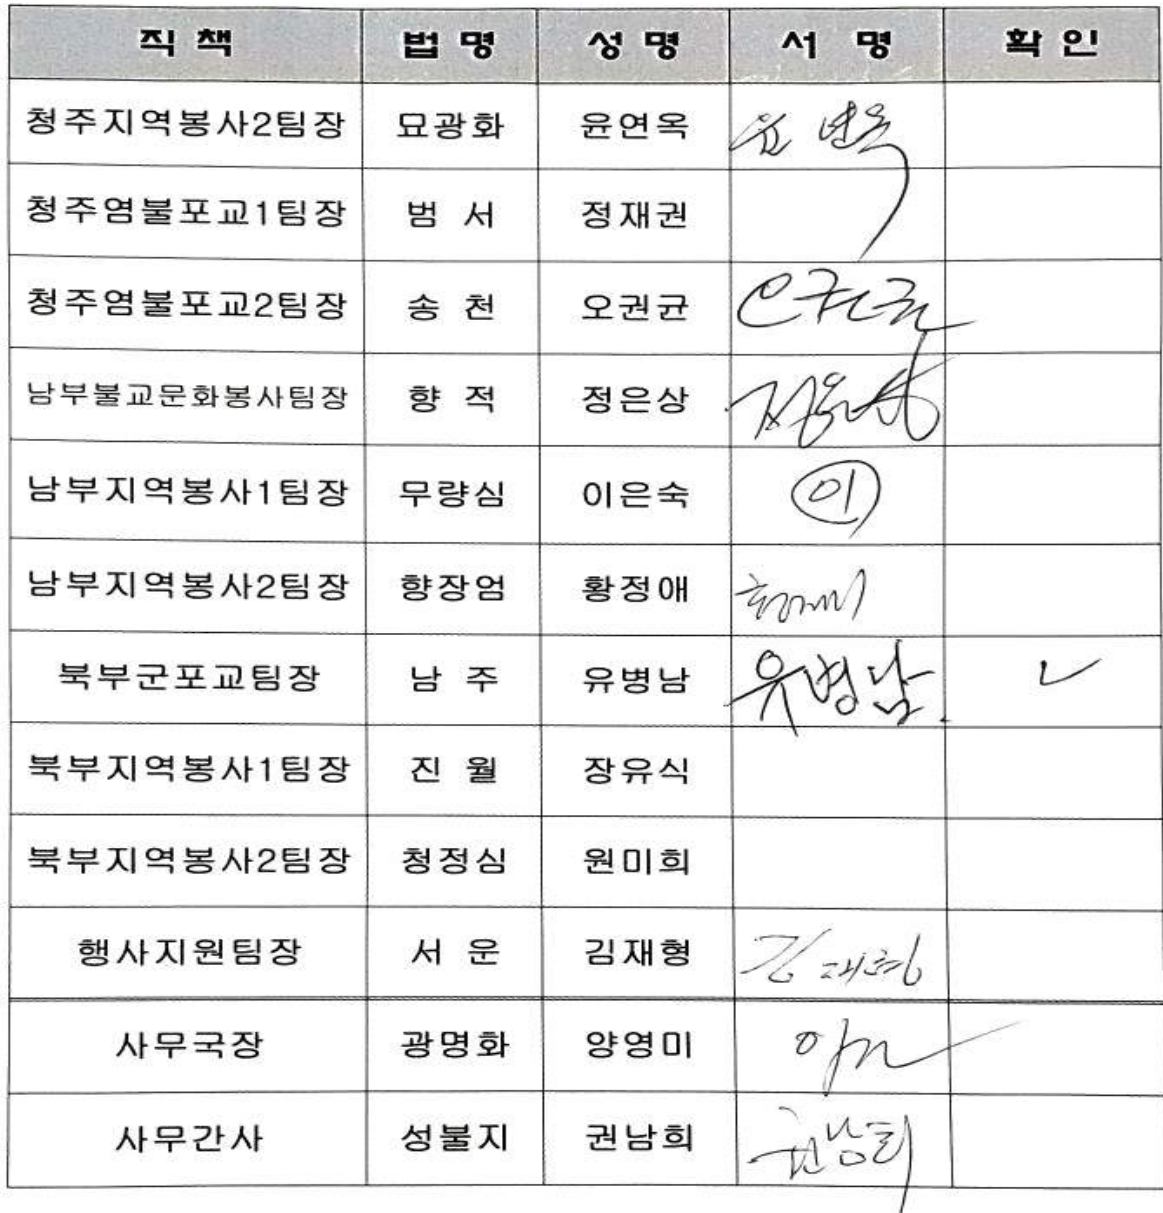 직 책 법 명 성 명 서 명 확 인
청주지역봉사2팀장 묘광화 윤연옥 윤연옥
청주염불포교1팀장 범 서 정재권
청주염불포교2팀장 송 천 오권균 오권균
남부불교문화봉사팀장 향 적 정은상 정은상
남부지역봉사1팀장 무량심 이은숙 이
남부지역봉사2팀장 향장엄 황정애
북부군포교팀장 남 주 유병남 유병남.
북부지역봉사1팀장 진 월 장유식
북부지역봉사2팀장 청정심 원미희
행사지원팀장 서 운 김재형 김재형
사무국장 광명화 양영미
사무간사 성불지 권남희 권남희